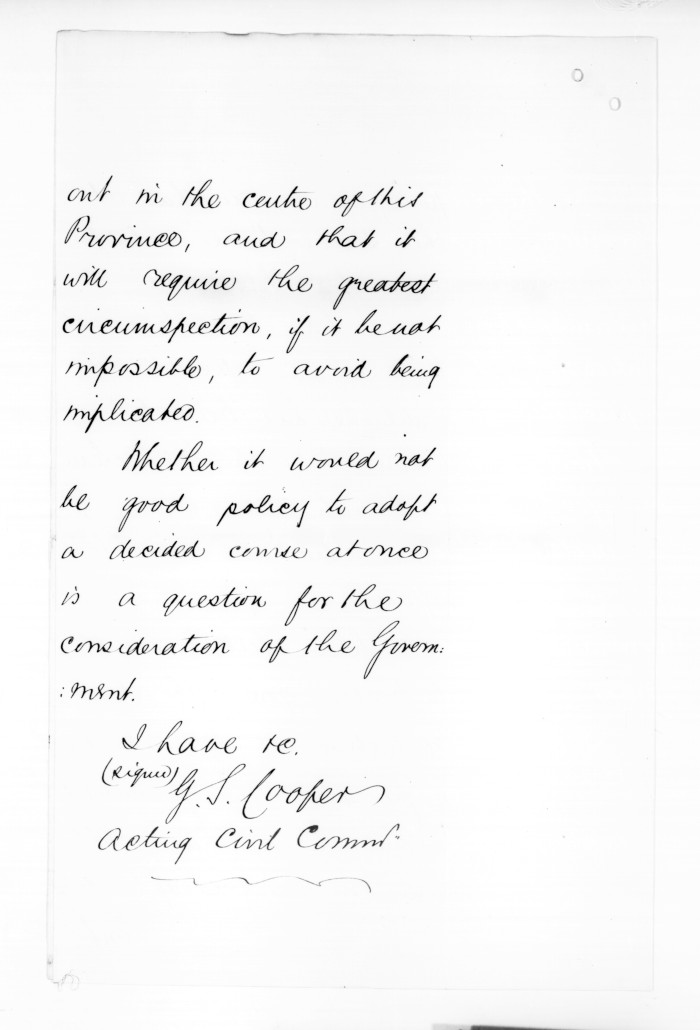 out in the centre of this
Province, and that it
will require the greatest
circumspection, if it be not
impossible, to avoid being
implicated.
Whether it would not
be good policy to adopt
a decided course at once
is a question for the
consideration of the Govern:
:ment.
I have &c.
(signed)
G. S. Cooper
Acting Civil Commr.